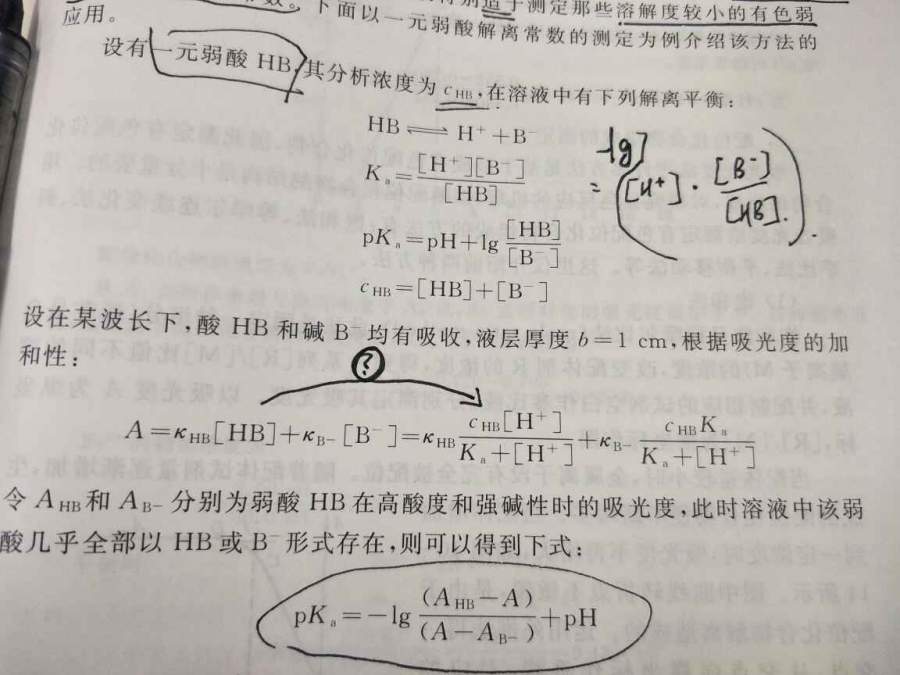 下面以一元弱酸解离常数的测定为例介绍该方法的
测定那些溶解度较小的有色弱
应用。
设有一元弱酸 HB,其分析浓度为 c_HB,在溶液中有下列解离平衡:
HB ⇌ H⁺ + B⁻
K_a = [H⁺][B⁻]/[HB]
lg
= ([H⁺] · [B⁻]/[HB].)
pK_a = pH + lg [HB]/[B⁻]
c_HB = [HB] + [B⁻]
设在某波长下,酸 HB 和碱 B⁻ 均有吸收,液层厚度 b=1 cm,根据吸光度的加
和性:
?
A = κ_HB[HB] + κ_B⁻[B⁻] = κ_HB c_HB[H⁺]/(K_a+[H⁺]) + κ_B⁻ c_HB K_a/(K_a+[H⁺])
令 A_HB 和 A_B⁻ 分别为弱酸 HB 在高酸度和强碱性时的吸光度,此时溶液中该弱
酸几乎全部以 HB 或 B⁻ 形式存在,则可以得到下式:
pK_a = −lg (A_HB − A)/(A − A_B⁻) + pH